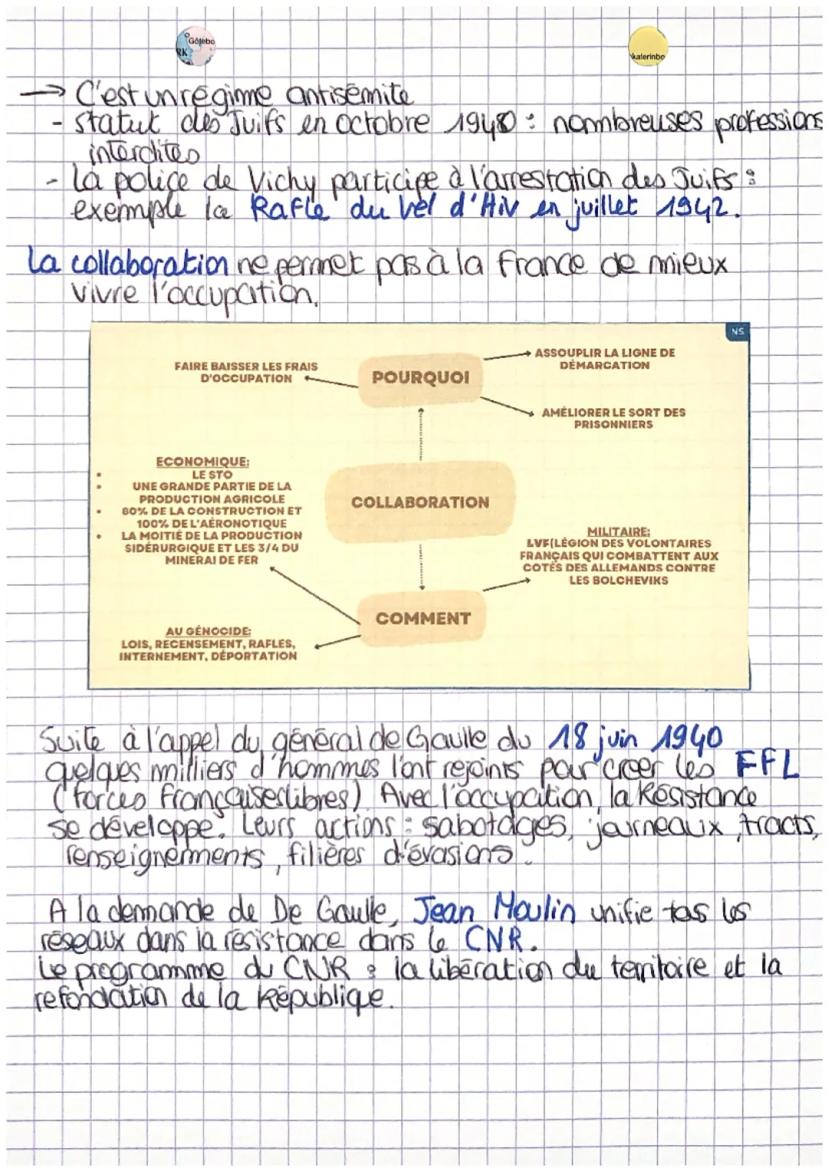 Gôjebo
RK
Kalerinbo
→ C'est un régime antisémite
- statut des Juifs en octobre 1940 : nombreuses professions
interdites
- la police de Vichy participe à l'arrestation des Juifs :
exemple la Rafle du Vél d'Hiv en juillet 1942.
La collaboration ne permet pas à la France de mieux
vivre l'occupation.
NS
FAIRE BAISSER LES FRAIS
D'OCCUPATION
POURQUOI
ASSOUPLIR LA LIGNE DE
DÉMARCATION
AMÉLIORER LE SORT DES
PRISONNIERS
ECONOMIQUE:
• LE STO
• UNE GRANDE PARTIE DE LA
PRODUCTION AGRICOLE
• 80% DE LA CONSTRUCTION ET
100% DE L'AÉRONOTIQUE
• LA MOITIÉ DE LA PRODUCTION
SIDÉRURGIQUE ET LES 3/4 DU
MINERAI DE FER
COLLABORATION
MILITAIRE:
LVF(LÉGION DES VOLONTAIRES
FRANÇAIS QUI COMBATTENT AUX
COTÉS DES ALLEMANDS CONTRE
LES BOLCHEVIKS
COMMENT
AU GÉNOCIDE:
LOIS, RECENSEMENT, RAFLES,
INTERNEMENT, DÉPORTATION
Suite à l'appel du général de Gaulle du 18 juin 1940
quelques milliers d'hommes l'ont rejoints pour créer les FFL
(forces françaises libres). Avec l'occupation, la Résistance
se développe. Leurs actions : sabotages, journeaux, tracts,
renseignements, filières d'évasions.
A la demande de De Gaulle, Jean Moulin unifie tos les
réseaux dans la résistance dans le CNR.
Le programme du CNR : la libération du territoire et la
refondation de la République.